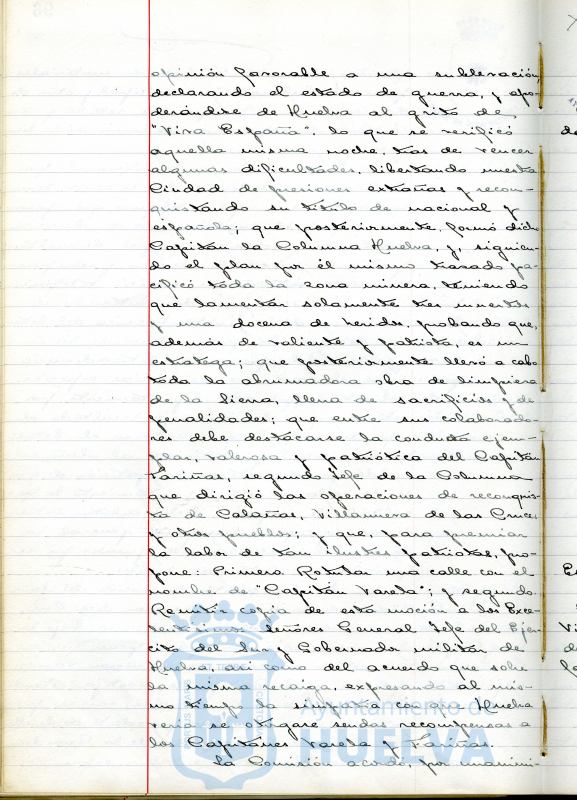 opinión favorable a una sublevación,
declarando el estado de guerra, y apo-
derándose de Huelva al grito de
"Viva España", lo que se verificó
aquella misma noche, tras de vencer
algunas dificultades, libertando nuestra
Ciudad de presiones extrañas y recon-
quistando su título de nacional y
española; que posteriormente formó dicho
Capitán la Columna Huelva, y, siguien-
do el plan por él mismo trazado pa-
cificó toda la zona minera, teniendo
que lamentar solamente tres muertos
y una docena de heridos, probando que,
además de valiente y patriota, es un
estratega; que posteriormente llevó a cabo
toda la abrumadora obra de limpieza
de la Sierra, llena de sacrificios y de
penalidades; que entre sus colaborado-
res debe destacarse la conducta ejem-
plar, valerosa y patriótica del Capitán
Fariñas, segundo Jefe de la Columna
que dirigió las operaciones de reconquis-
ta de Calañas, Villanueva de las Cruces
y otros pueblos; y que, para premiar
la labor de tan ilustres patriotas, pro-
pone: Primero. Rotular una calle con el
nombre de "Capitán Varela"; y segundo.
Remitir copia de esta moción a los Exce-
lentísimos Señores General Jefe del Ejér-
cito del Sur y Gobernador militar de
Huelva, así como del acuerdo que sobre
la misma recaiga, expresando al mis-
mo tiempo la simpatía con que Huelva
vería se otorgase sendas recompensas a
los Capitanes Varela y Fariñas.
La Comisión acordó, por unanimi-
Ayuntamiento de
HUELVA